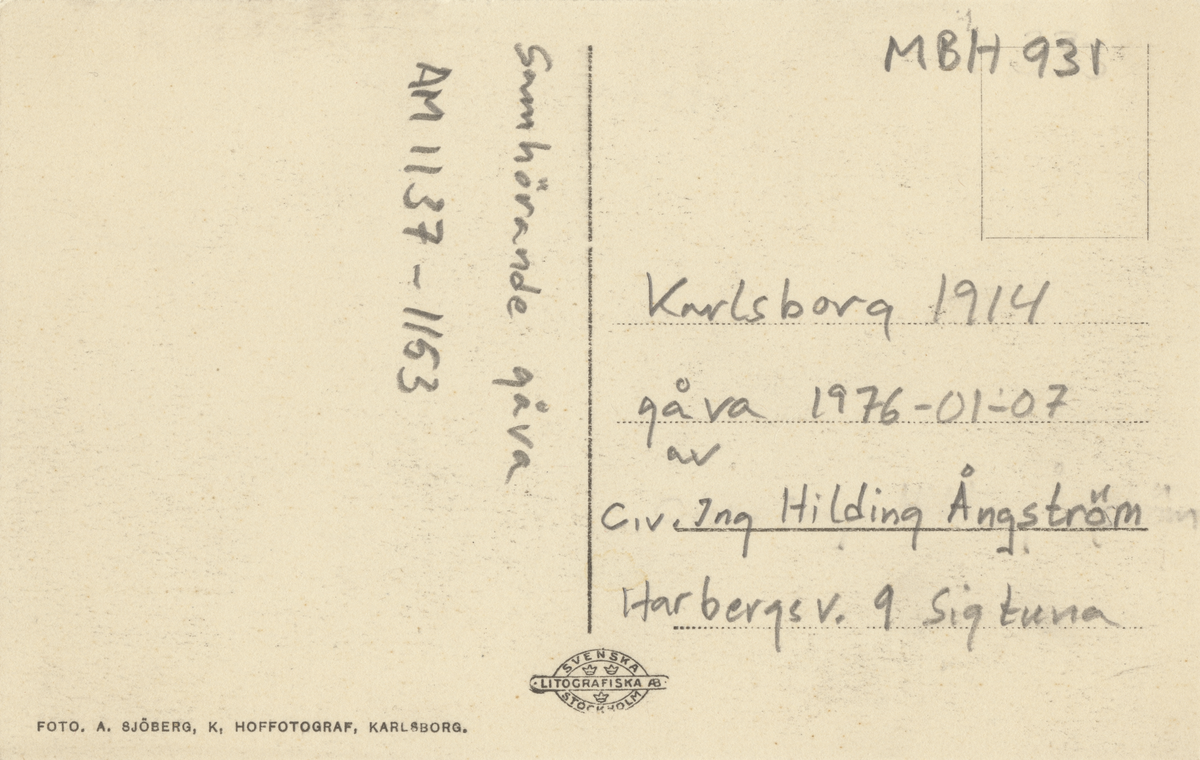 MBH 931
Samhörande gåva
AM 1137-1153
Karlsborg 1914
gåva 1976-01-07
av
Civ. Ing Hilding Ångström
Harbergsv. 9 Sigtuna
SVENSKA
LITOGRAFISKA AB
STOCKHOLM
FOTO. A. SJÖBERG, K, HOFFOTOGRAF, KARLSBORG.